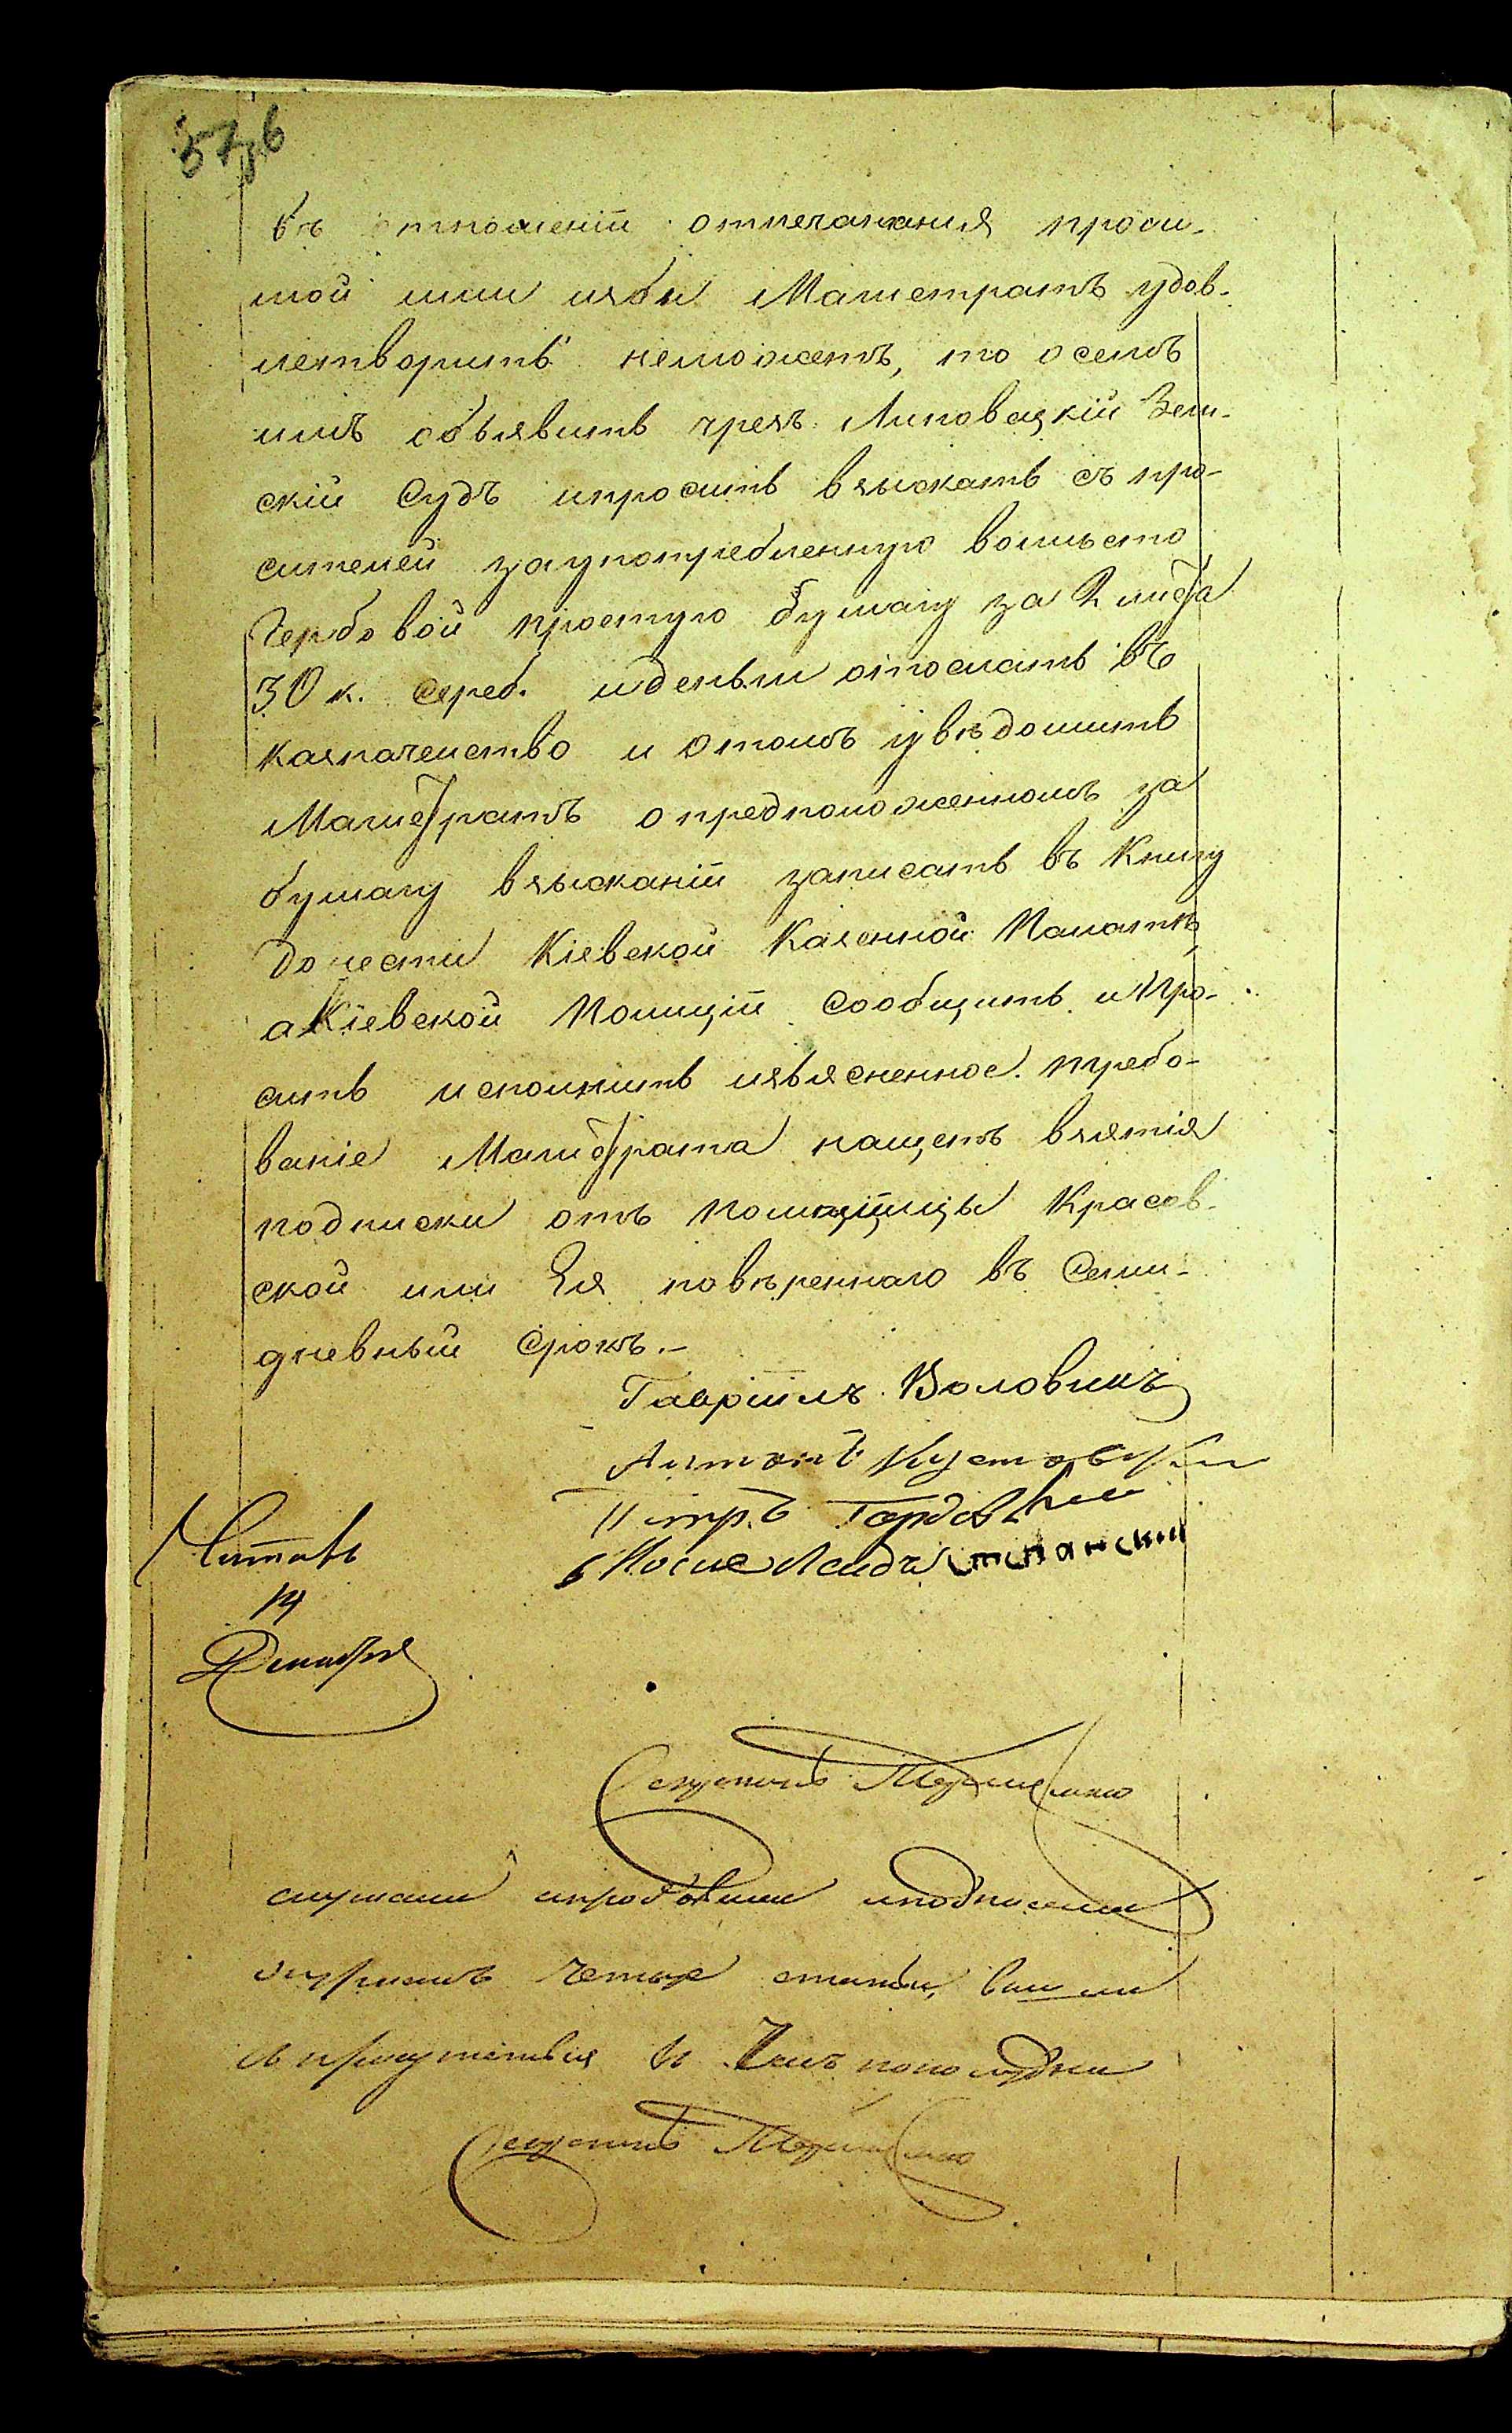 въ отношеніи отпечатания проси-
мой ими избы Магистратъ удов-
летворить неможетъ, то осемъ
имъ объявить чрезъ Липовецкій Зем-
скій Судъ ипросить взыскать съ про-
сителей заупотребленную вомѣсто
Гербовой простую бумагу за 2 листа
30 к. сереб. иденьги отослать въ
казначейство и отомъ увѣдомить
Магистратъ опредположенномъ за
бумагу взысканіи записать въ Книгу
донести Кіевской Казенной Палатѣ,
а Кіевской Полиціи сообщить и про-
сить исполнить изъясненное требо-
ваніе Магистрата нащетъ взятія
подписки отъ Помѣщицы Красов-
ской или Ея повѣреннаго въ Семи-
дневный срокъ.-
Гавріилъ Воловикъ
Антонъ
Петръ
Читалъ
14
Декабря
Секретарь
слушали иподписали
журналъ четыре статьи, вышли
изприсутствія въ часъ пополудни
Секретарь